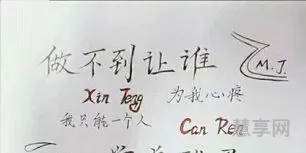 做不到让谁 M.J.
Xin Teng 为我心疼
我只能一个人 Can Ren
慧享网